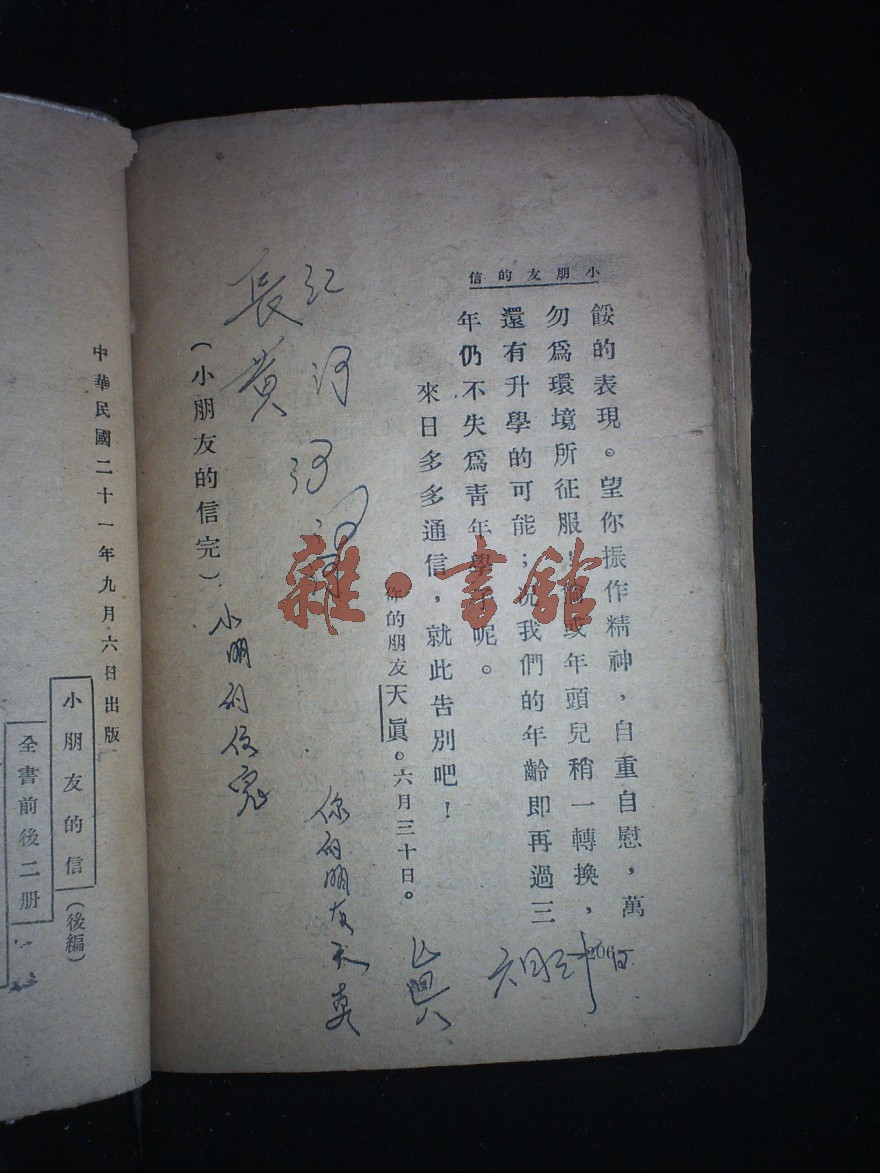 小朋友的信
餒的表現。望你振作精神，自重自慰，萬
勿爲環境所征服！倘或年頭兒稍一轉換，
還有升學的可能；況我們的年齡即再過三
年仍不失爲靑年學子呢。
來日多多通信，就此告別吧！
你的朋友天眞。六月三十日。
(小朋友的信完)
206
長江
黃河
河
小朋的信完
你的朋友天真
眞
雜·書館
中華民國二十一年九月六日出版
小朋友的信(後編)
全書前後二册